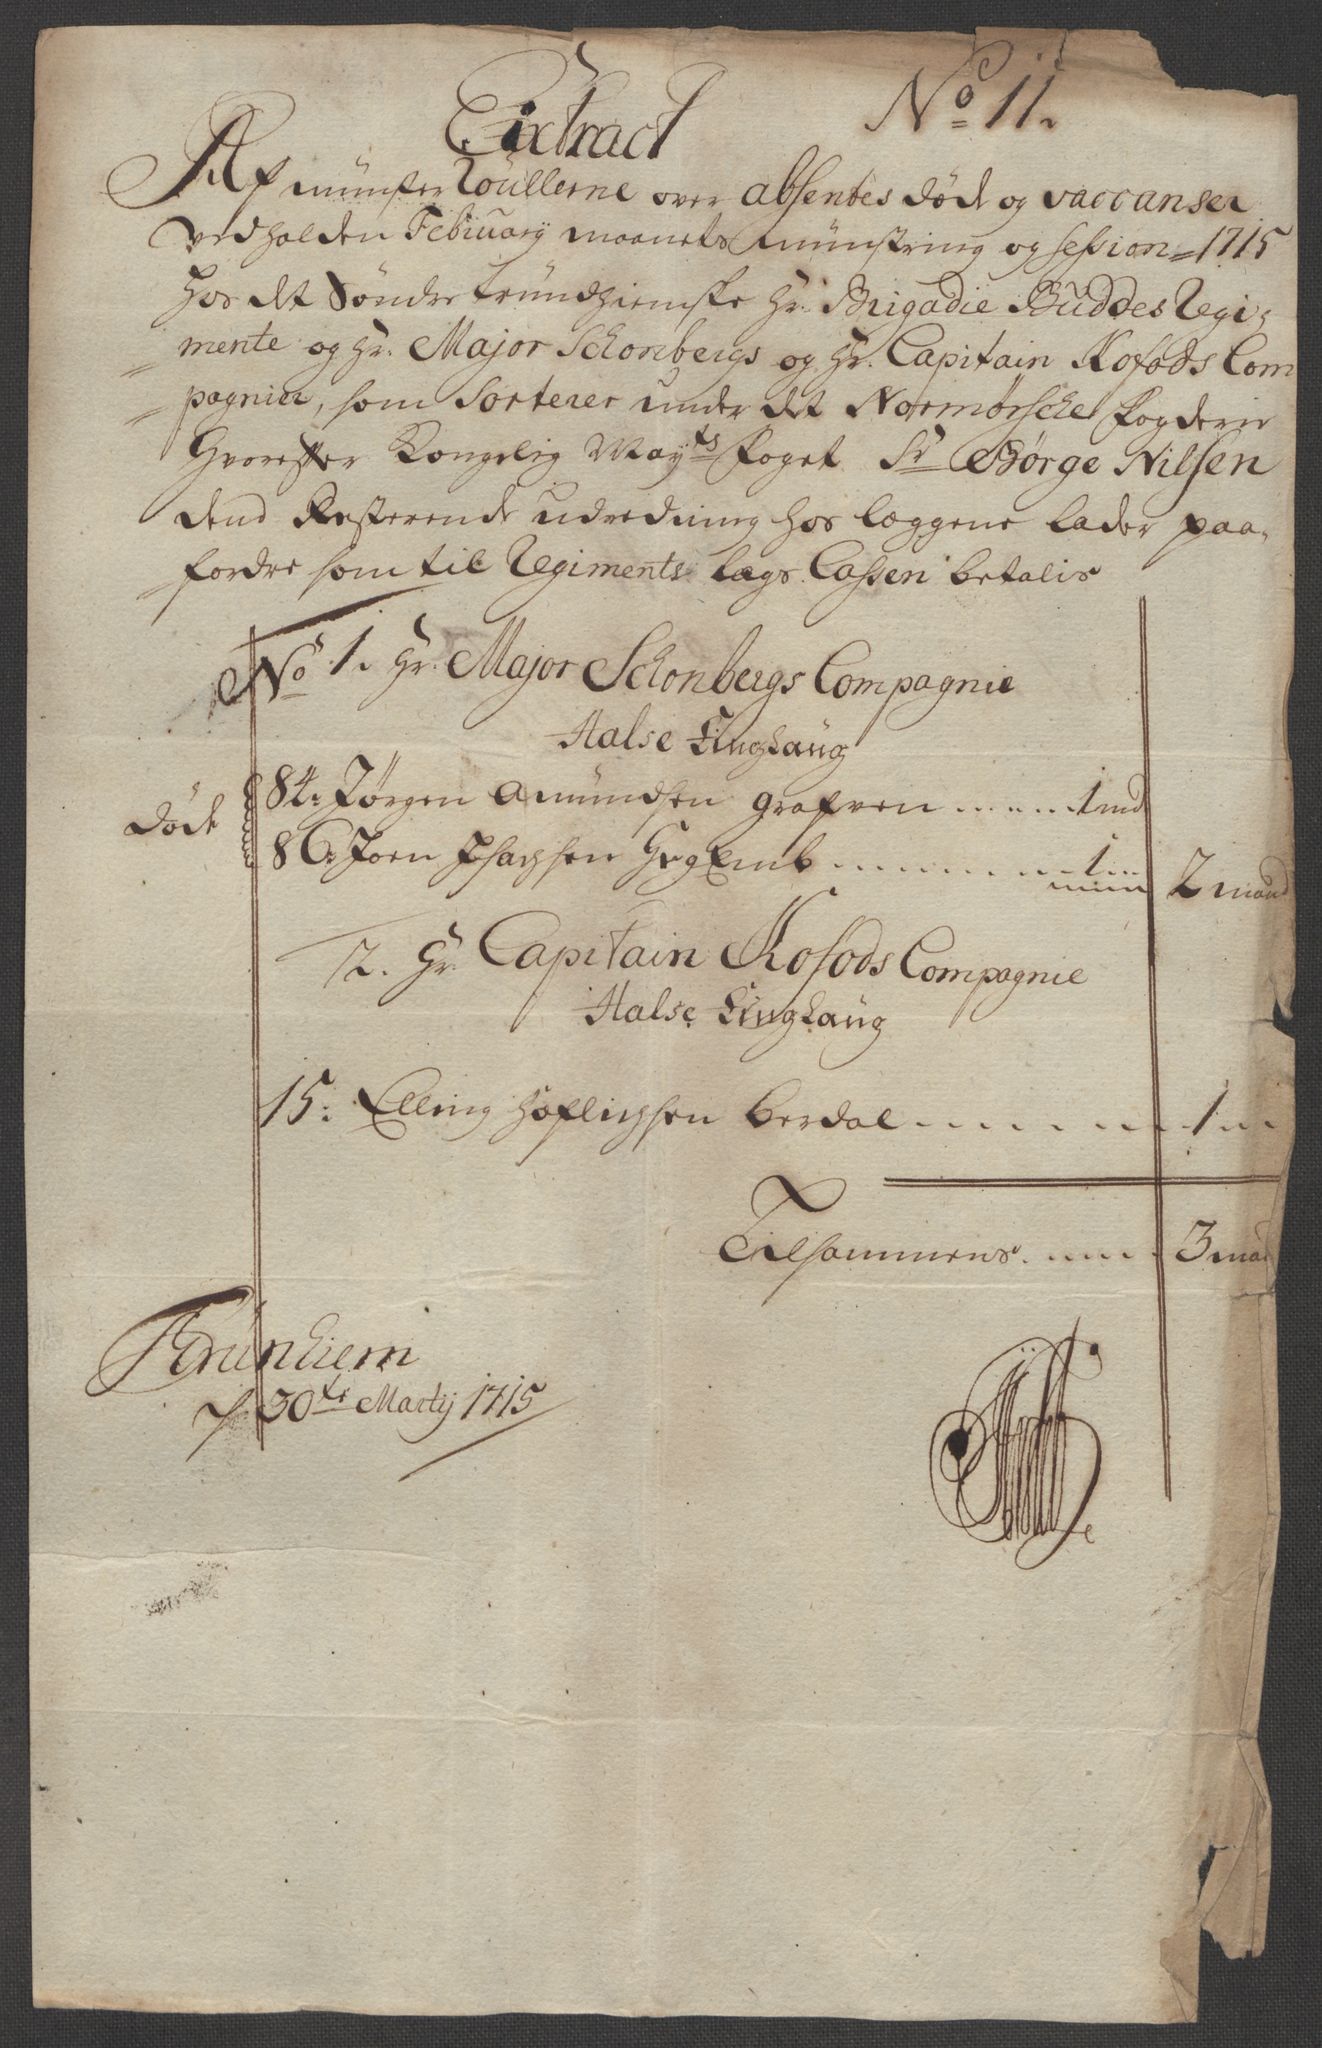 No 11.
Extract
Af münster Roullerne over absentes döde og vaccanser
ved holden February maanets münstring og session 1715
hos det Söndre trundhiemske Hr. Brigadie Buddes Regi-
mente og Hr. Major Schonbergs og Hr. Capitain Kofods Com
pagnier, som Sorterer under det Normörsche fogderie
hvorefter Kongelig Mayts foget Sr Börge Nilsen
dend Resterende udredning hos læggene lader paa-
fordre som til Regiments lægs Cassen betalis
No 1. Hr. Major Schonbergs Compagnie
Halse Tinglaug
84: Jörgen Amundsen grafven 1 md
döde
86: Joen Isachsen 1 2 mand
2. Hr. Capitain Kofods Compagnie
Halse Tinglaug
15: Elling berdal 1
Tilsammens 3 man
Trünhiem
30te Martij 1715